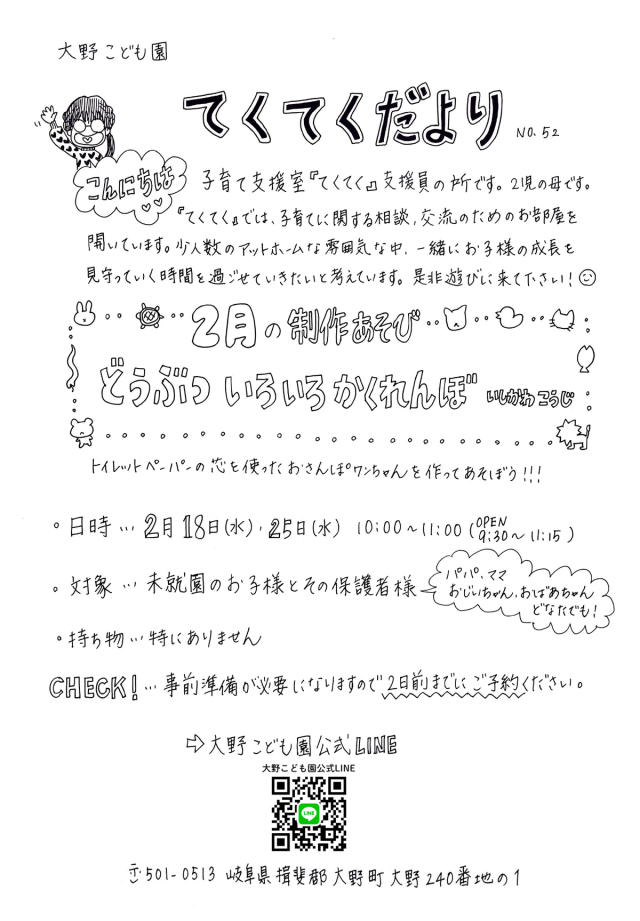 大野こども園
てくてくだより NO.52
こんにちは
子育て支援室『てくてく』支援員の所です。2児の母です。
『てくてく』では、子育てに関する相談,交流のためのお部屋を
開いています。少人数のアットホームな雰囲気な中、一緒にお子様の成長を
見守っていく時間を過ごせていきたいと考えています。是非遊びに来て下さい!
2月の制作あそび
どうぶつ いろいろ かくれんぼ いしかわ こうじ
トイレットペーパーの芯を使ったおさんぽワンちゃんを作ってあそぼう!!!
。日時…2月18日(水)・25日(水) 10:00~11:00 (OPEN 9:30~11:15)
。対象…未就園のお子様とその保護者様
パパ、ママ
おじいちゃん、おばあちゃん
どなたでも!
・持ち物…特にありません
CHECK!…事前準備が必要になりますので2日前までにご予約ください。
⇨大野こども園公式LINE
大野こども園公式LINE
LINE
〒501-0513 岐阜県揖斐郡大野町大野240番地の1